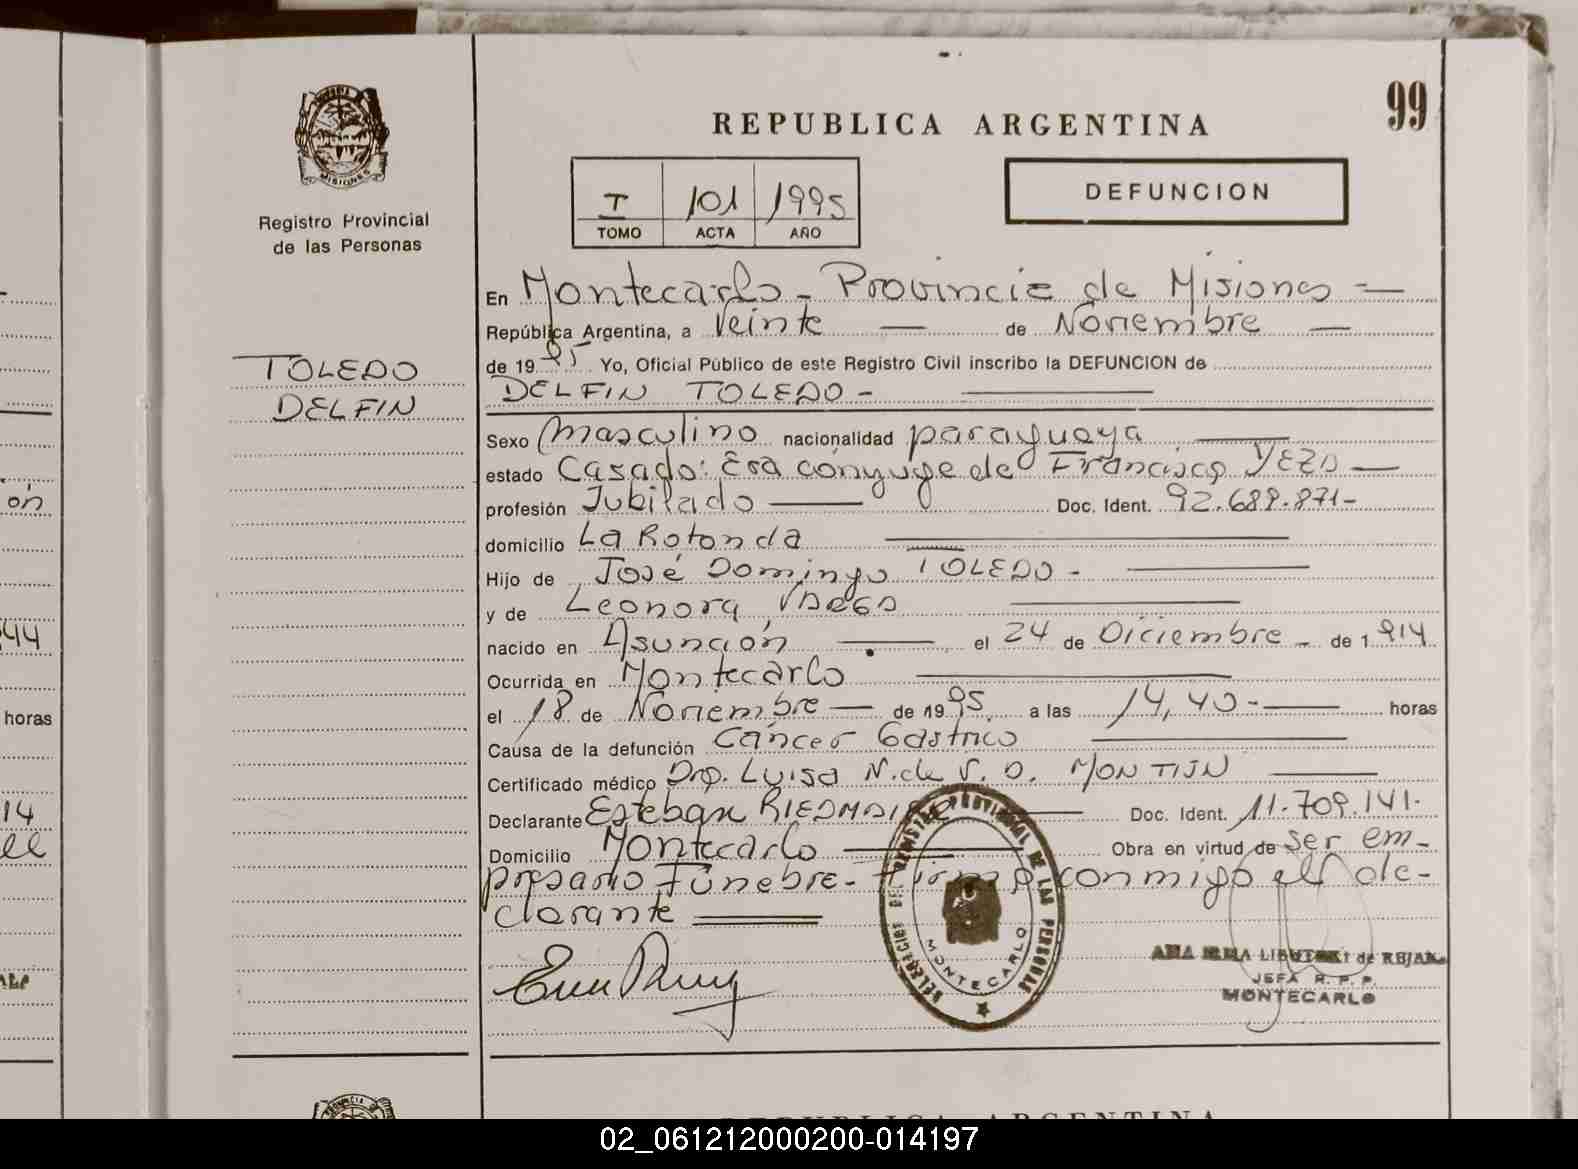 99
REPUBLICA ARGENTINA
MISIONES
Registro Provincial
de las Personas
I 101 1995
TOMO ACTA AÑO
DEFUNCION
En Montecarlo - Provincia de Misiones
República Argentina, a Veinte de Noviembre
TOLEDO
DELFIN
de 1995 Yo, Oficial Público de este Registro Civil inscribo la DEFUNCION de
DELFIN TOLEDO -
Sexo Masculino nacionalidad paraguaya
estado Casado: Era cónyuge de Francisca
profesión Jubilado Doc. Ident. 92.689.871-
domicilio La Rotonda
Hijo de José Domingo TOLEDO -
y de Leonora
nacido en Asunción el 24 de Diciembre - de 1914
Ocurrida en Montecarlo
el 18 de Noviembre de 1995 a las 14,40- horas
Causa de la defunción Cáncer Gástrico
Certificado médico Dra. Luisa N. de V. D. MONTIJN
Declarante Esteban Doc. Ident. 11.709.141.
Domicilio Montecarlo Obra en virtud de ser em-
presario Fúnebre- Firma conmigo el de-
clarante
REGISTRO PROVINCIAL DE LAS PERSONAS
MONTECARLO
ANA de REJAN
JEFA R. P. P.
MONTECARLO
ón
44
horas
14
REPUBLICA ARGENTINA
02_061212000200-014197